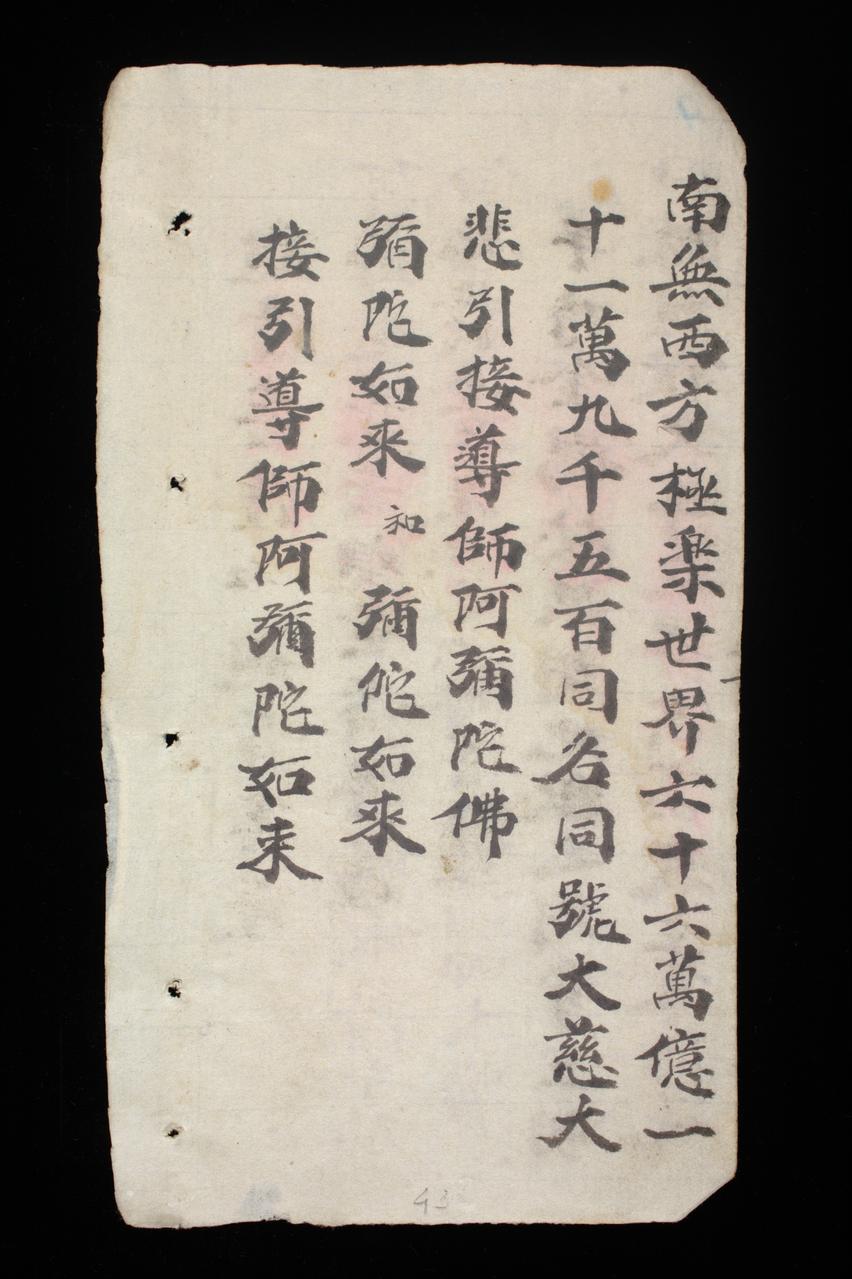 南無西方極楽世界六十六萬億一
十一萬九千五百同名同號大慈大
悲引接導師阿彌陀佛
彌陀如來 和 彌陀如來
接引導師阿彌陀如来
43